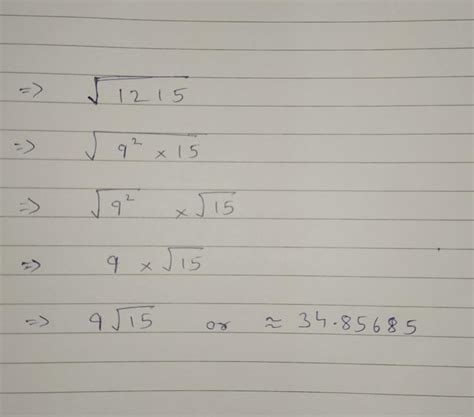 => √1215
=> √9² × 15
=> √9² × √15
=> 9 × √15
=> 9√15 or ≈ 34.85685